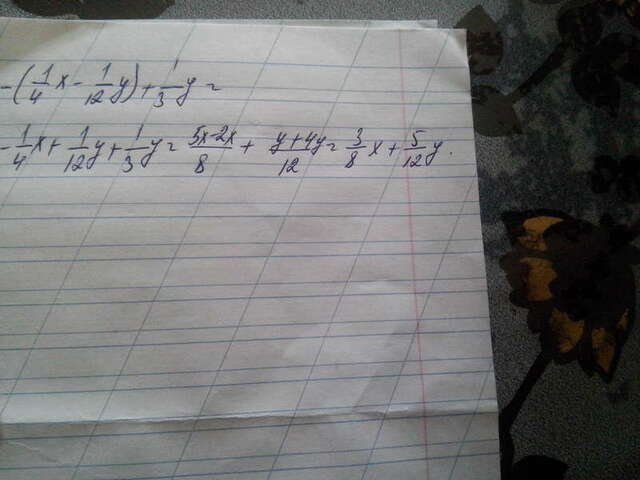 -(1/4 x - 1/12 y) + 1/3 y =
- 1/4 x + 1/12 y + 1/3 y = 5x-2x/8 + y+4y/12 = 3/8 x + 5/12 y.